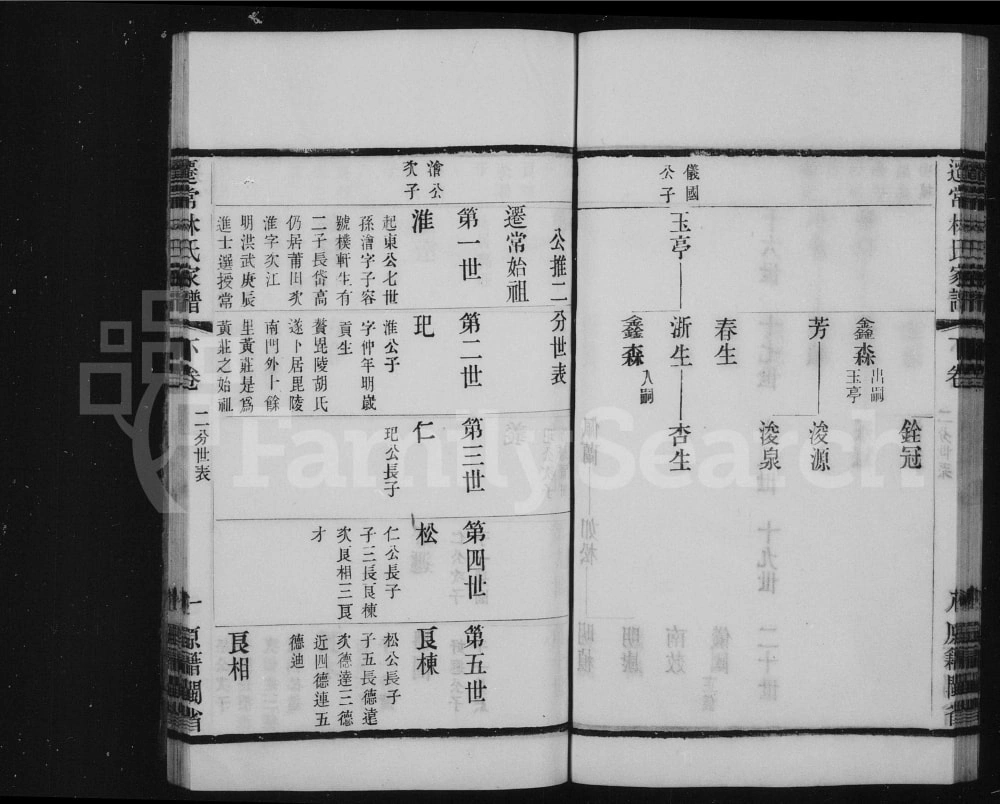 銓冠
鑫森
出嗣
玉亭
芳
浚源
浚泉
春生
儀國
公子
玉亭
浙生
杏生
鑫森
入嗣
公推二分世表
遷常始祖
第一世
第二世
第三世
第四世
第五世
澮公
次子
淮
起東公七世
孫澮字子容
號樸軒生有
二子長岱高
仍居莆田次
淮字次江
明洪武庚辰
進士選授常
玘
淮公子
字仲年明歲
貢生
贅毘陵胡氏
遂卜居毘陵
南門外十餘
里黃莊是爲
黃莊之始祖
仁
玘公長子
松
仁公長子
子三長良棟
次良相三良
才
良棟
松公長子
子五長德達
次德達三德
近四德連五
德迪
良相
遷常林氏家譜
下卷
二分世表
一
原籍閩省
FamilySearch